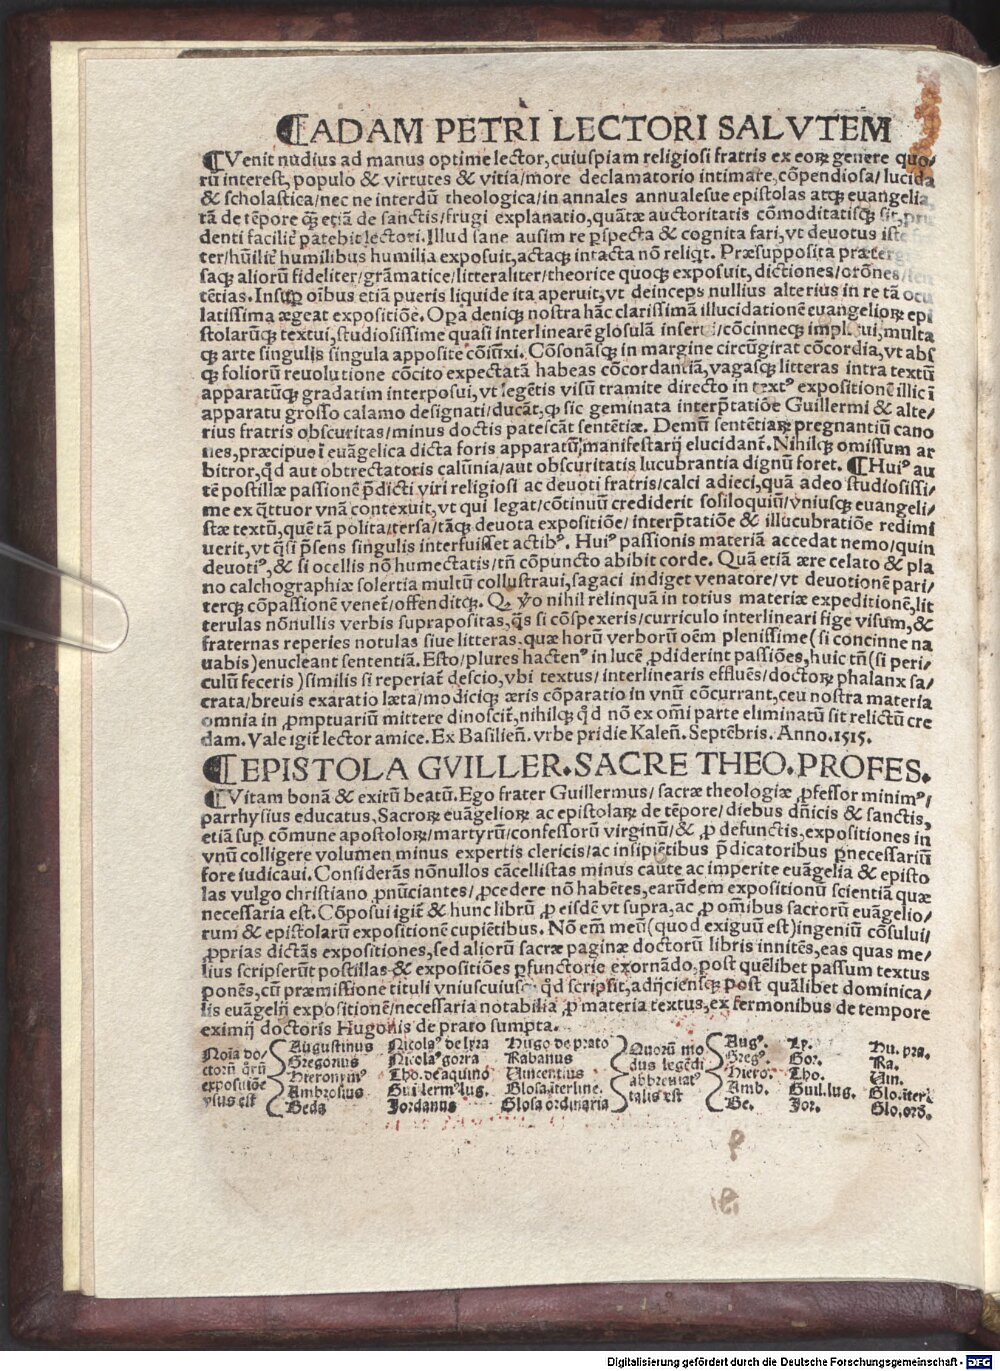 ADAM PETRI LECTORI SALVTEM
Venit nudius ad manus optime lector, cuiuspiam religiosi fratris ex eoꝝ genere quo/
rū interest, populo & virtutes & vitia/more declamatorio intimare, cōpendiosa/ lucida
& scholastica/nec ne interdū theologica/in annales annualesue epistolas atqꝫ euangelia
tā de tēpore qꝫ etiā de sanctis/frugi explanatio, quātæ auctoritatis cōmoditatisqꝫ sit,
denti facilit᷑ patebit lectori. Illud sane ausim re ꝑspecta & cognita fari, vt deuotus iste
ter/hūilit᷑ humilibus humilia exposuit, actaqꝫ intacta nō reliqt. Præsupposita
saqꝫ aliorū fideliter/grāmatice/litteraliter/theorice quoqꝫ exposuit, dictiones/orōnes/
tētias. Insuꝑ oībus etiā pueris liquide ita aperuit, vt deinceps nullius alterius in re tā
latissima ægeat expositiōe. Opā deniqꝫ nostra hāc clarissimā illucidationē euangelioꝝ epi
stolarūqꝫ textui, studiosissime quasi interlinearē glosulā inserui/cōcinneqꝫ multa
qꝫ arte singulis singula apposite cōiūxi. Cōsonāsqꝫ in margine circūgirat cōcordia, vt absqꝫ
foliorū reuolutione cōcito expectatā habeas cōcordantiā, vagasqꝫ litteras intra textū
apparatūqꝫ gradatim interposui, vt legētis visū tramite directo in textꝰ expositionē illic ī
apparatu grosso calamo designati/ducāt, ꝙ sic geminata interp̄tatiōe Guillermi & alte/
rius fratris obscuritas/minus doctis patescāt sentētiæ. Demū sentētiaꝝ pregnantiū cano
nes, præcipue ī euāgelica dicta foris apparatū/manifestarij elucidant᷑. Nihilqꝫ omissum ar
bitror, q̄d aut obtrectatoris calūnia/aut obscuritatis lucubrantia dignū foret. Huiꝰ au
tē postillæ passionē p̄dicti viri religiosi ac deuoti fratris/calci adieci, quā adeo studiosissi/
me ex q̄ttuor vnā contexuit, vt qui legat/cōtinuū crediderit sosiloquiū/vniusqꝫ euangeli/
stæ textū, quē tā polita/tersa/tāqꝫ deuota expositiōe/ interp̄tatiōe & illucubratiōe redimi
uerit, vt q̄si p̄sens singulis interfuisset actibꝰ. Huiꝰ passionis materiā accedat nemo/quin
deuotiꝰ, & si ocellis nō humectatis/tn̄ cōpuncto abibit corde. Quā etiā ære celato & pla
no calchographiæ solertia multū collustraui, sagaci indiget venatore/vt deuotionē pari/
terqꝫ cōpassionē venet᷑/offenditqꝫ. nihil relinquā in totius materiæ expeditionē, lit
terulas nōnullis verbis suprapositas, q̄s si cōspexeris/curriculo interlineari fige visum, &
fraternas reperies notulas siue litteras, quæ horū verborū oēm plenissime (si concinne na
uabis) enucleant sententiā. Esto/plures hactenꝰ in lucē ꝓdiderint passiōes, huic tn̄ (si peri/
culū feceris) similis si reperiat᷑ nescio, vbi textus/ interlinearis effluēs/doctoꝝ phalanx sa/
crata/breuis exaratio læta/modiciqꝫ æris cōparatio in vnū cōcurrant, ceu nostra materia
omnia in ꝓmptuariū mittere dinoscit᷑, nihilqꝫ q̄d nō ex oīm parte eliminatū sit relictū cre
dam. Vale igit᷑ lector amice. Ex Basilien̄. vrbe pridie Kalen̄. Septēbris. Anno. 1515.
EPISTOLA GVILLER. SACRE THEO. PROFES.
Vitam bonā & exitū beatū. Ego frater Guillermus/ sacræ theologiæ ꝓfessor minimꝰ/
parrhysius educatus, Sacroꝝ euāgelioꝝ ac epistolaꝝ de tēpore/ diebus dn̄icis & sanctis,
etiā suꝑ cōmune apostoloꝝ/martyrū/confessorū virginū/& ꝓ defunctis, expositiones in
vnū colligere volumen minus expertis clericis/ac insipiētibus p̄dicatoribus ꝑnecessariū
fore iudicaui. Considerās nōnullos cācellistas minus caute ac imperite euāgelia & episto
las vulgo christiano ꝓnūciantes/ ꝓcedere nō habētes, earūdem expositionū scientiā quæ
necessaria est. Cōposui igit᷑ & hunc librū ꝓ eisdē vt supra, ac ꝓ oīmbus sacrorū euāgelio/
rum & epistolarū expositionē cupiētibus. Nō em̄ meū (quod exiguū est) ingeniū cōsului/
ꝓprias dictās expositiones, sed aliorū sacræ paginæ doctorū libris innitēs, eas quas me/
lius scripserūt postillas & expositiōes ꝑfunctorie exornādo, post quēlibet passum textus
ponēs, cū præmissione tituli vniuscuiusqꝫ q̄d scripsit, adijciensqꝫ post quālibet dominica/
lis euāgelij expositionē/necessaria notabilia ꝓ materia textus, ex sermonibus de tempore
eximij doctoris Hugonis de prato sumpta.
Noīa do/
ctorū q̄rū
expositiōe
vsus est
Augustinus
Gregorius
Hieronymꝰ
Ambrosius
Beda
Nicolaꝰ de lyra
Nicolaꝰ gorra
Tho. de aquino
Guilermꝰ lug.
Jordanus
Hugo de prato
Rabanus
Vincentius
Glosa īterline.
Glosa ordinaria
Quorū mo
dus legēdi
abbreuiatꝰ
talis est
Augꝰ.
Gregꝰ.
Hiero.
Amb.
Be.
Ly.
Gor.
Tho.
Guil. lug.
Jor.
Hu. pra.
Ra.
Vin.
Glo. īter.
Glo. ord.
Digitalisierung gefördert durch die Deutsche Forschungsgemeinschaft - DFG